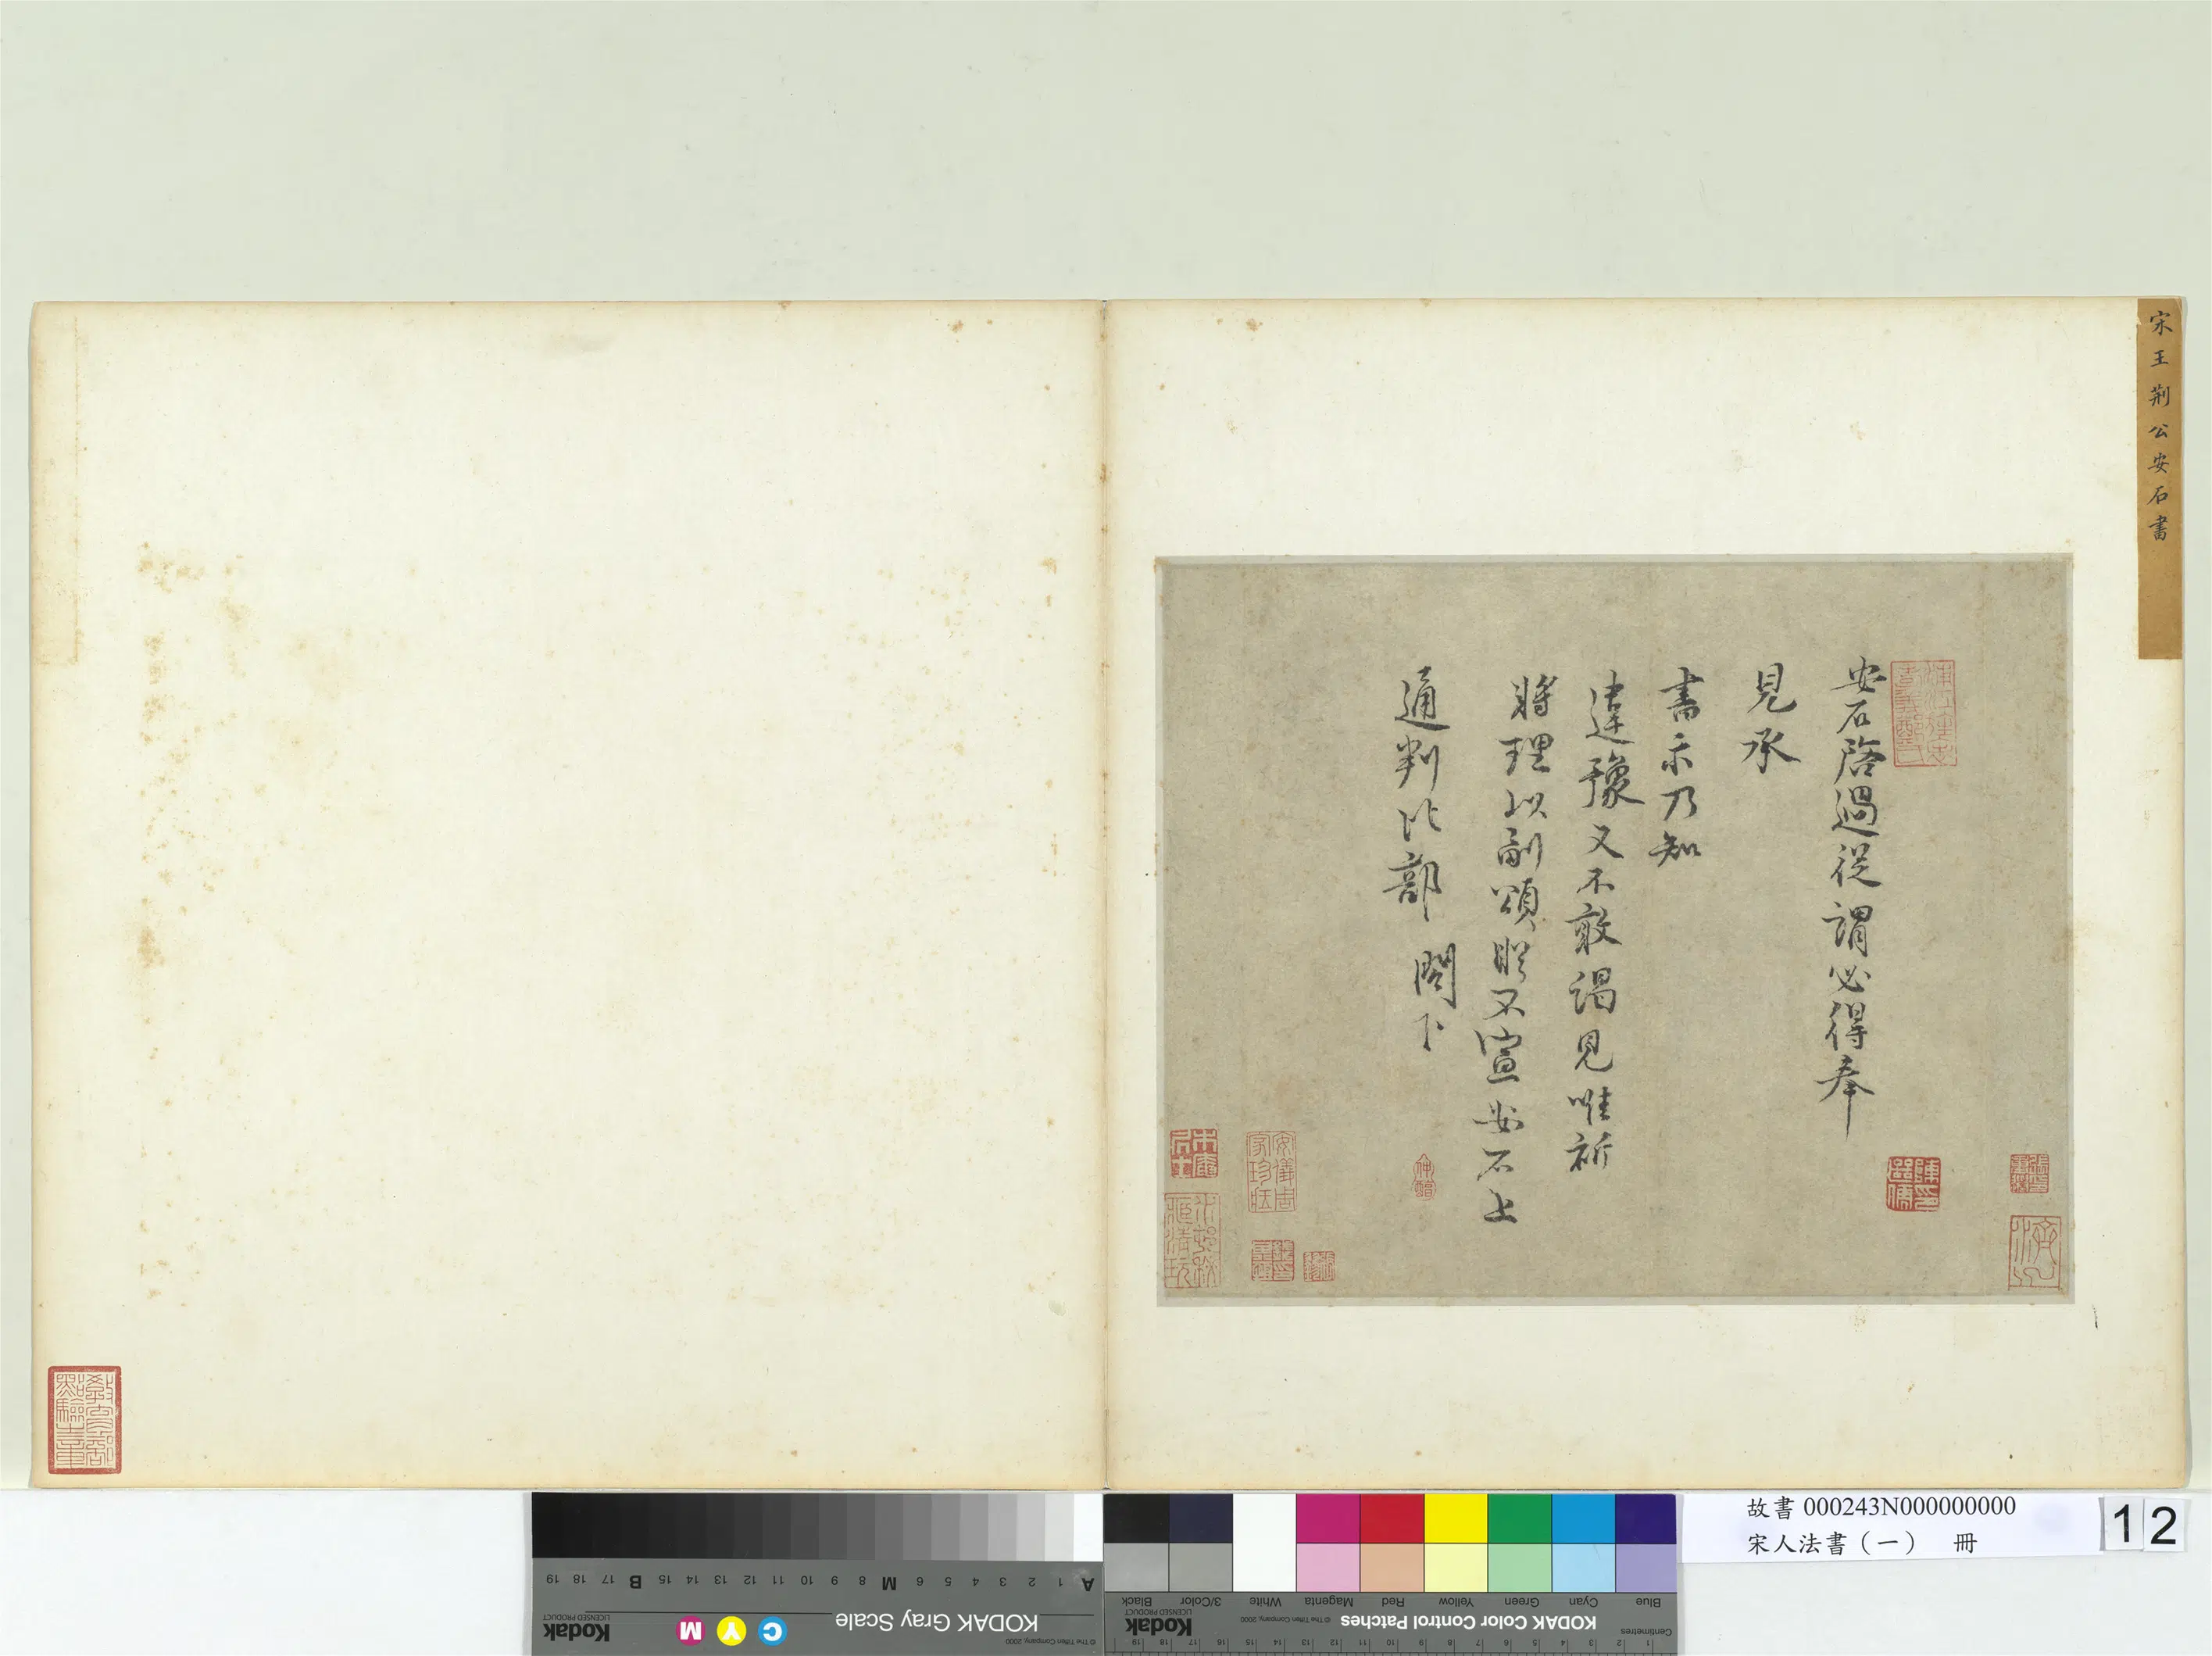 宋王荊公安石書
安石啓過從謂必得奉
見承
書示乃知
違豫又不敢謁見唯祈
將理以副頌盻不宣安石上
通判比部 閤下
KODAK Gray Scale
Kodak
LICENSED PRODUCT
© The Tiffen Company, 2000
A 1 2 3 4 5 6 M 8 9 10 11 12 13 14 15 B 17 18 19
C Y M
KODAK Color Control Patches
Kodak
LICENSED PRODUCT
© The Tiffen Company, 2000
Blue Cyan Green Yellow Red Magenta White 3/Color Black
Centimetres
故書 000243N000000000
宋人法書（一） 冊
12